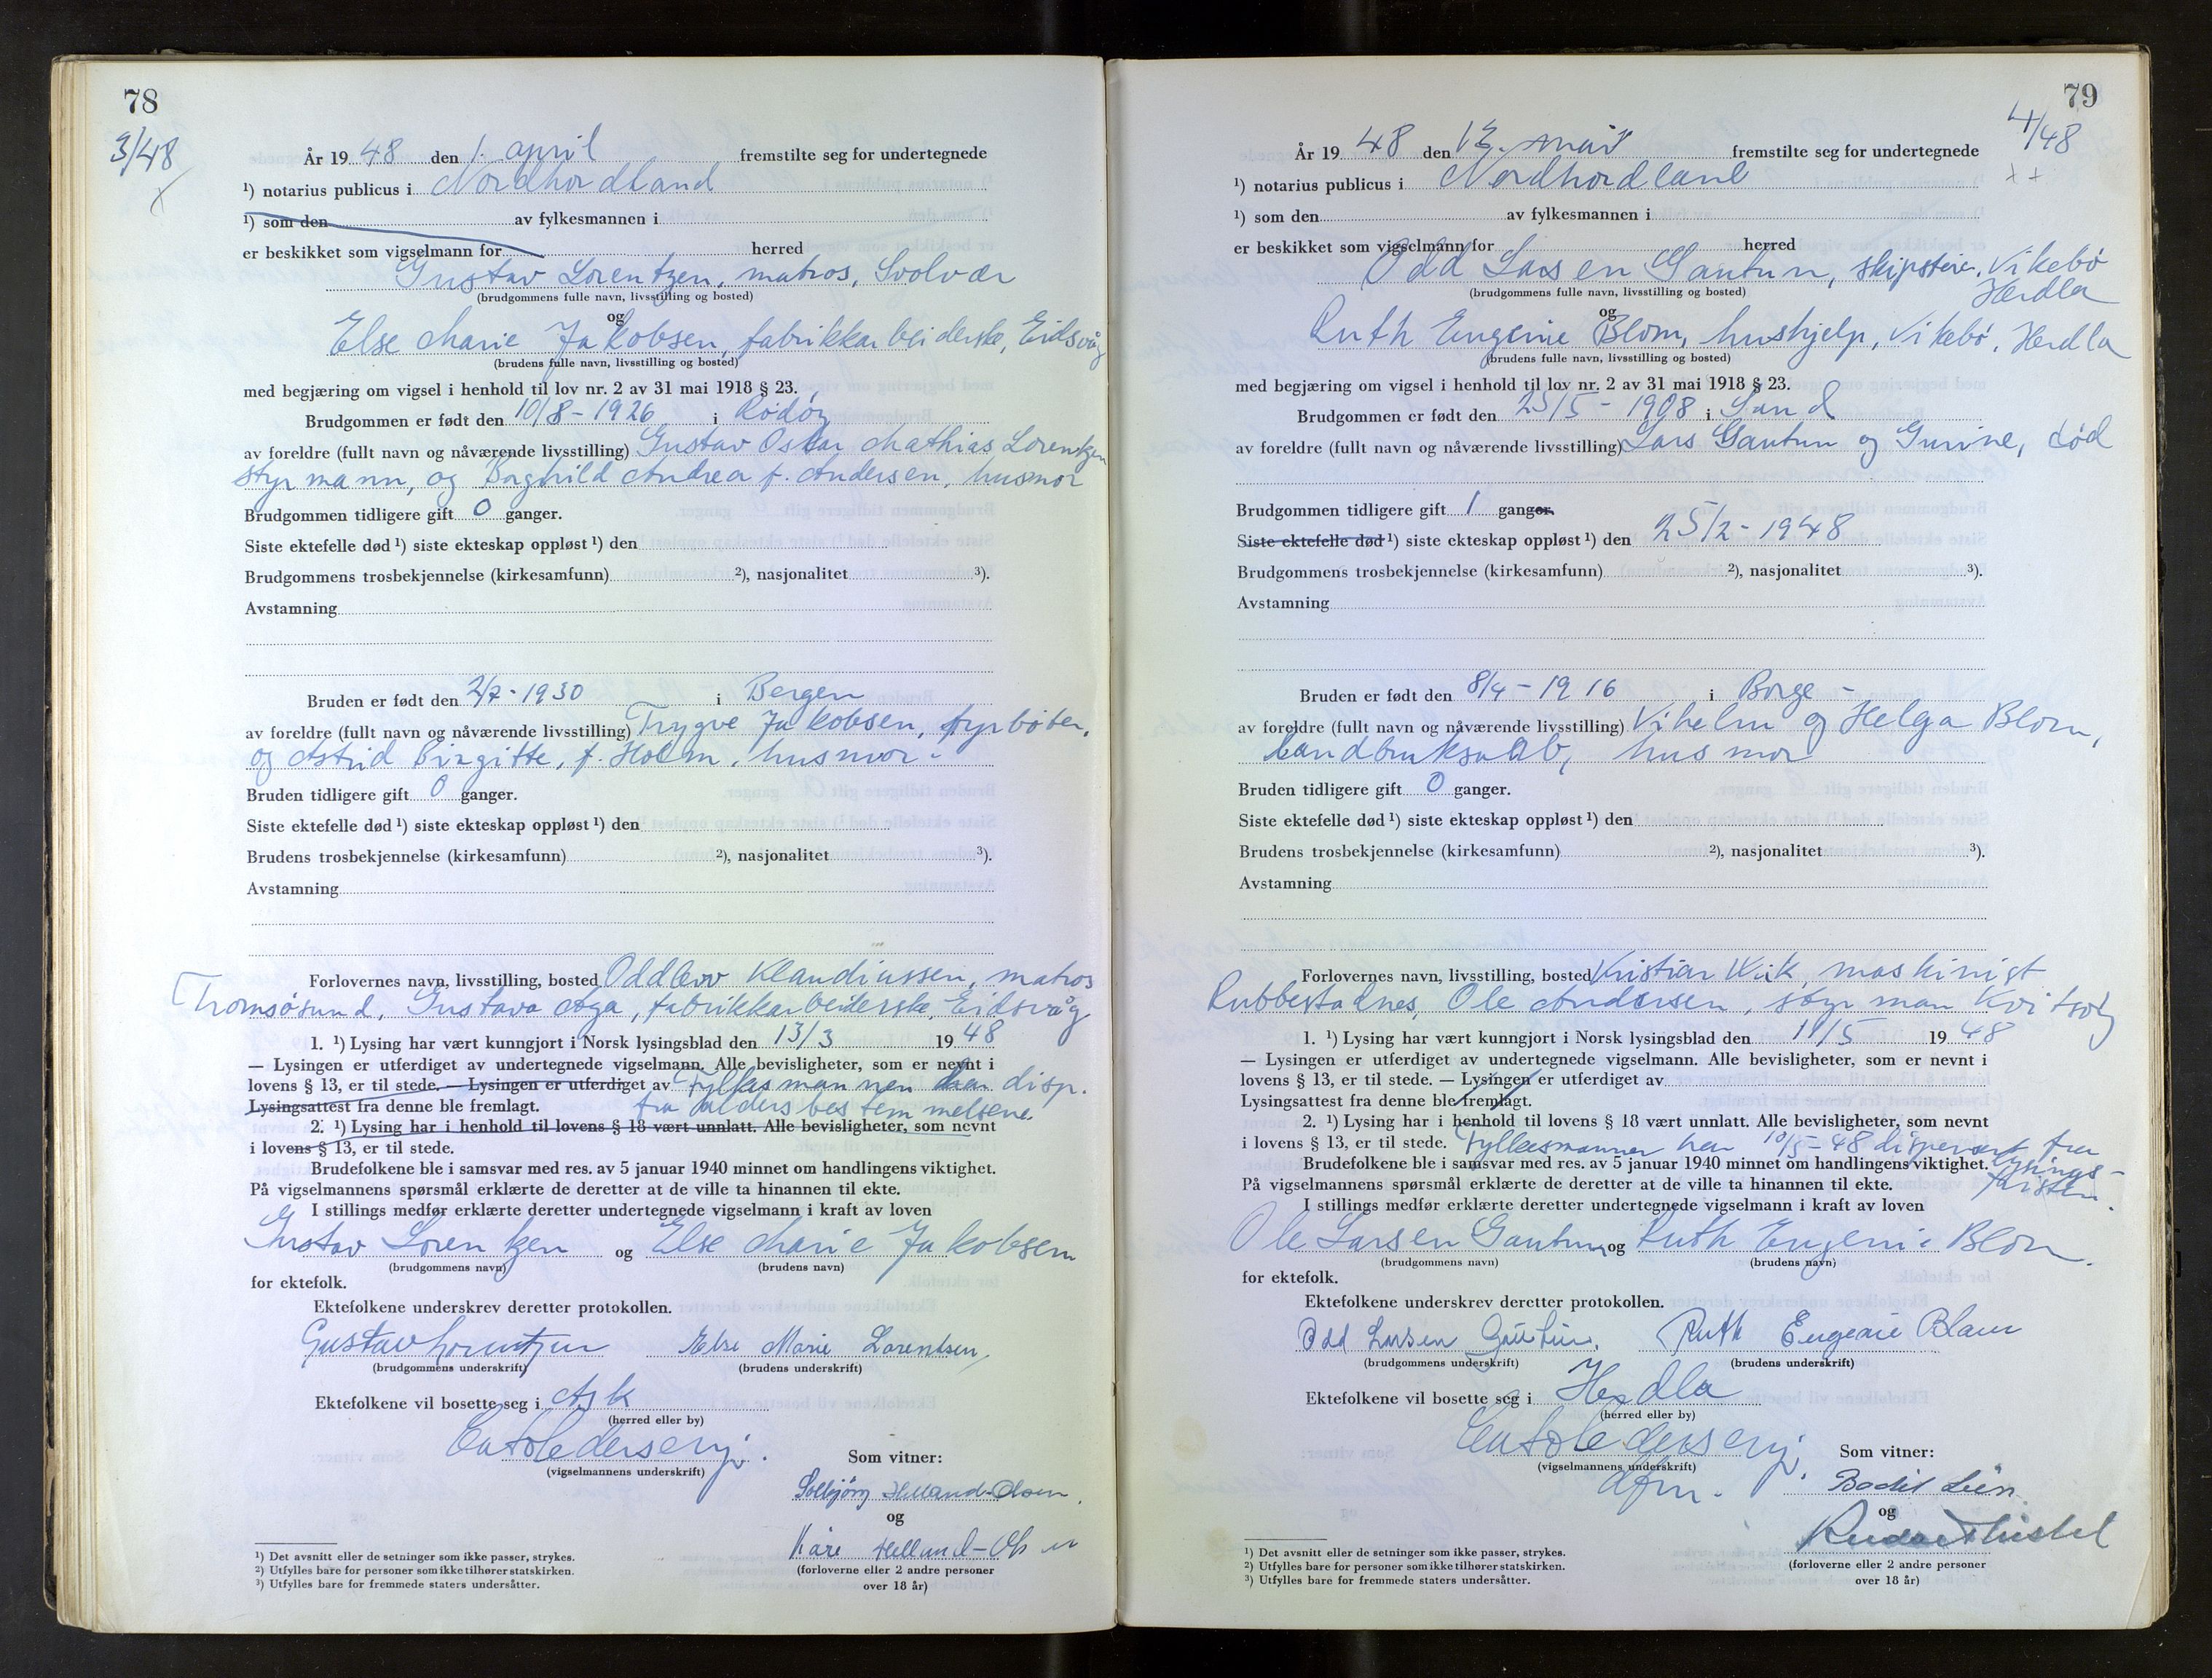 78
3/48
År 19 48 den 1. april fremstilte seg for undertegnede
¹) notarius publicus i Nordhordland
¹) som den av fylkesmannen i
er beskikket som vigselmann for herred
Gustav Lorentzen, matros, Svolvær
(brudgommens fulle navn, livsstilling og bosted)
og
Else Marie Jakobsen, fabrikkarbeiderske, Eidsvåg
(brudens fulle navn, livsstilling og bosted)
med begjæring om vigsel i henhold til lov nr. 2 av 31 mai 1918 § 23.
Brudgommen er født den 10/8 - 1926 i Rødøy
av foreldre (fullt navn og nåværende livsstilling) Gustav Oskar Mathias Lorentzen
styrmann, og Borghild Andrea f. Andersen, husmor
Brudgommen tidligere gift 0 ganger.
Siste ektefelle død ¹) siste ekteskap oppløst ¹) den
Brudgommens trosbekjennelse (kirkesamfunn) ²), nasjonalitet ³).
Avstamning
Bruden er født den 2/7 - 1930 i Bergen
av foreldre (fullt navn og nåværende livsstilling) Trygve Jakobsen, fyrbøter,
og Astrid Birgitte, f. Holm, husmor.
Bruden tidligere gift 0 ganger.
Siste ektefelle død ¹) siste ekteskap oppløst ¹) den
Brudens trosbekjennelse (kirkesamfunn) ²), nasjonalitet ³).
Avstamning
Forlovernes navn, livsstilling, bosted Oddlev Klaudiussen, matros
Tromsøsund, Gustava Aga, fabrikkarbeiderske, Eidsvåg
1. ¹) Lysing har vært kunngjort i Norsk lysingsblad den 13/3 19 48
— Lysingen er utferdiget av undertegnede vigselmann. Alle bevisligheter, som er nevnt i
lovens § 13, er til stede. — Lysingen er utferdiget av Fylkesmannen har disp.
Lysingsattest fra denne ble fremlagt. fra aldersbestemmelsene.
2. ¹) Lysing har i henhold til lovens § 18 vært unnlatt. Alle bevisligheter, som nevnt
i lovens § 13, er til stede.
Brudefolkene ble i samsvar med res. av 5 januar 1940 minnet om handlingens viktighet.
På vigselmannens spørsmål erklærte de deretter at de ville ta hinannen til ekte.
I stillings medfør erklærte deretter undertegnede vigselmann i kraft av loven
Gustav Lorentzen og Else Marie Jakobsen
(brudgommens navn) (brudens navn)
for ektefolk.
Ektefolkene underskrev deretter protokollen.
Gustav Lorentzen Else Marie Lorentsen,
(brudgommens underskrift) (brudens underskrift)
Ektefolkene vil bosette seg i Ask
(herred eller by)
(vigselmannens underskrift)
Som vitner:
Solbjörg Helland-Olsen.
og
Kåre Helland-Olsen
(forloverne eller 2 andre personer
over 18 år)
¹) Det avsnitt eller de setninger som ikke passer, strykes.
²) Utfylles bare for personer som ikke tilhører statskirken.
³) Utfylles bare for fremmede staters undersåtter.
79
4/48
År 19 48 den 12. mai fremstilte seg for undertegnede
¹) notarius publicus i Nordhordland
¹) som den av fylkesmannen i
er beskikket som vigselmann for herred
Odd Larsen Gautun, skipsfører, Vikebø
Herdla
(brudgommens fulle navn, livsstilling og bosted)
og
Ruth Eugenie Blom, hushjelp, Vikebø, Herdla
(brudens fulle navn, livsstilling og bosted)
med begjæring om vigsel i henhold til lov nr. 2 av 31 mai 1918 § 23.
Brudgommen er født den 25/5 - 1908 i Sand
av foreldre (fullt navn og nåværende livsstilling) Lars Gautun og Gurine, død
Brudgommen tidligere gift 1 ganger.
Siste ektefelle død ¹) siste ekteskap oppløst ¹) den 25/2 - 1948
Brudgommens trosbekjennelse (kirkesamfunn) ²), nasjonalitet ³).
Avstamning
Bruden er født den 8/4 - 1916 i Borge -
av foreldre (fullt navn og nåværende livsstilling) Vihelm og Helga Blom,
landbruksarb, husmor
Bruden tidligere gift 0 ganger.
Siste ektefelle død ¹) siste ekteskap oppløst ¹) den
Brudens trosbekjennelse (kirkesamfunn) ²), nasjonalitet ³).
Avstamning
Forlovernes navn, livsstilling, bosted Kristian Wiik, maskinist
Rubbestadnes, Ole Andersen, styrman Kvitsøy
1. ¹) Lysing har vært kunngjort i Norsk lysingsblad den 11/5 19 48
— Lysingen er utferdiget av undertegnede vigselmann. Alle bevisligheter, som er nevnt i
lovens § 13, er til stede. — Lysingen er utferdiget av
Lysingsattest fra denne ble fremlagt.
2. ¹) Lysing har i henhold til lovens § 18 vært unnlatt. Alle bevisligheter, som nevnt
i lovens § 13, er til stede. Fylkesmannen har 10/5-48 dispensert fra
lysings-
fristen.
Brudefolkene ble i samsvar med res. av 5 januar 1940 minnet om handlingens viktighet.
På vigselmannens spørsmål erklærte de deretter at de ville ta hinannen til ekte.
I stillings medfør erklærte deretter undertegnede vigselmann i kraft av loven
Ole Larsen Gautun og Ruth Eugenie Blom.
(brudgommens navn) (brudens navn)
for ektefolk.
Ektefolkene underskrev deretter protokollen.
Odd Larsen Gautun. Ruth Eugenie Blom
(brudgommens underskrift) (brudens underskrift)
Ektefolkene vil bosette seg i Herdla
(herred eller by)
(vigselmannens underskrift)
dfm.
Som vitner:
Bodil Lien
og
(forloverne eller 2 andre personer
over 18 år)
¹) Det avsnitt eller de setninger som ikke passer, strykes.
²) Utfylles bare for personer som ikke tilhører statskirken.
³) Utfylles bare for fremmede staters undersåtter.